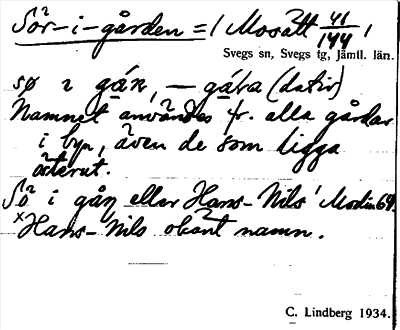 Sör-i-gården = / Mosätt 41/144 /
Svegs sn, Svegs tg, Jämtl. län.
sø i gán, — gáɽa (dativ)
Namnet användes fr. alla gårdar
i byn, även de som ligga
österut.
Sö i gån eller Hans-Nils / Modin 69.
x Hans-Nils okänt namn.
C. Lindberg 1934.